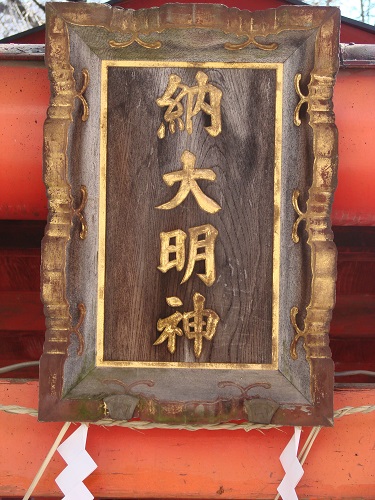 納大明神